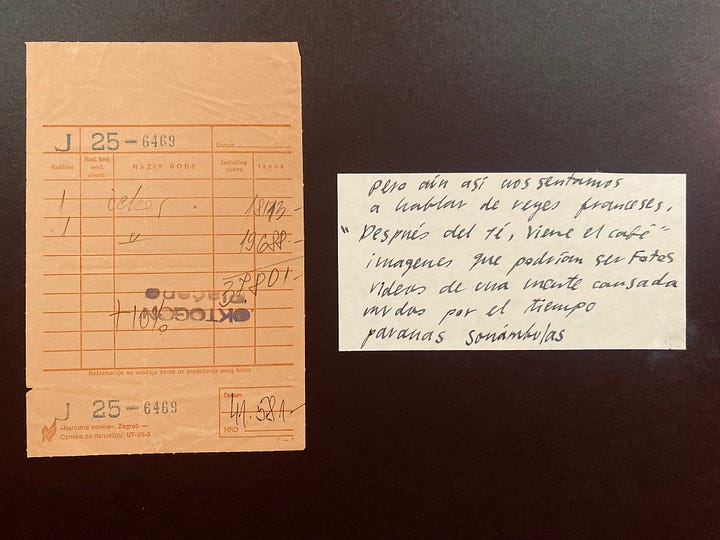 J 25-6469 Datum
Količina Rad. broj evid. cijena NAZIV ROBE Jedinična cijena Iznos
1 18113.-
1 -"- 19688.-
37801.-
Plaćeno
OKTOGON
+10%
Reklamacije se uvažuju samo uz predočenje ovog bloka
J 25-6469 Datum
41.581.-
HRD
«Narodne novine», Zagreb —
Oznaka za narudžbu: UT-VII-3
7 — 1
pero aún así nos sentamos
a hablar de reyes franceses.
"Después del té, viene el café"
imagenes que podrían ser fotos
videos de una mente cansada
por el tiempo
sonámbulas